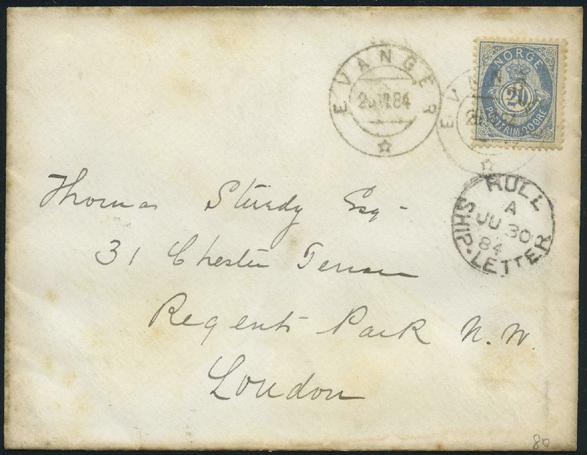 NORGE
20
POSTFRIM. 20 ØRE
EVANGER
84
EVAN
HULL
A
JU 30
84
SHIP-LETTER
Thomas Sturdy Esq-
31 Chester Terrace
Regents Park N.W.
London
80